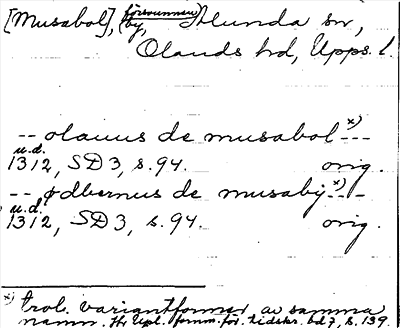 [Musabol], försvunnen by, Alunda sn,
Olands hd, Upps. l.
-- olauus de musabol x) --
u.d.
1312, SD 3, s. 94. orig.
-- ødbernus de musaby x) --
u.d.
1312, SD 3, s. 94. orig.
x) trol. variantformer av samma
namn. Upl. fornm.för. tidskr. bd 7, s. 139.